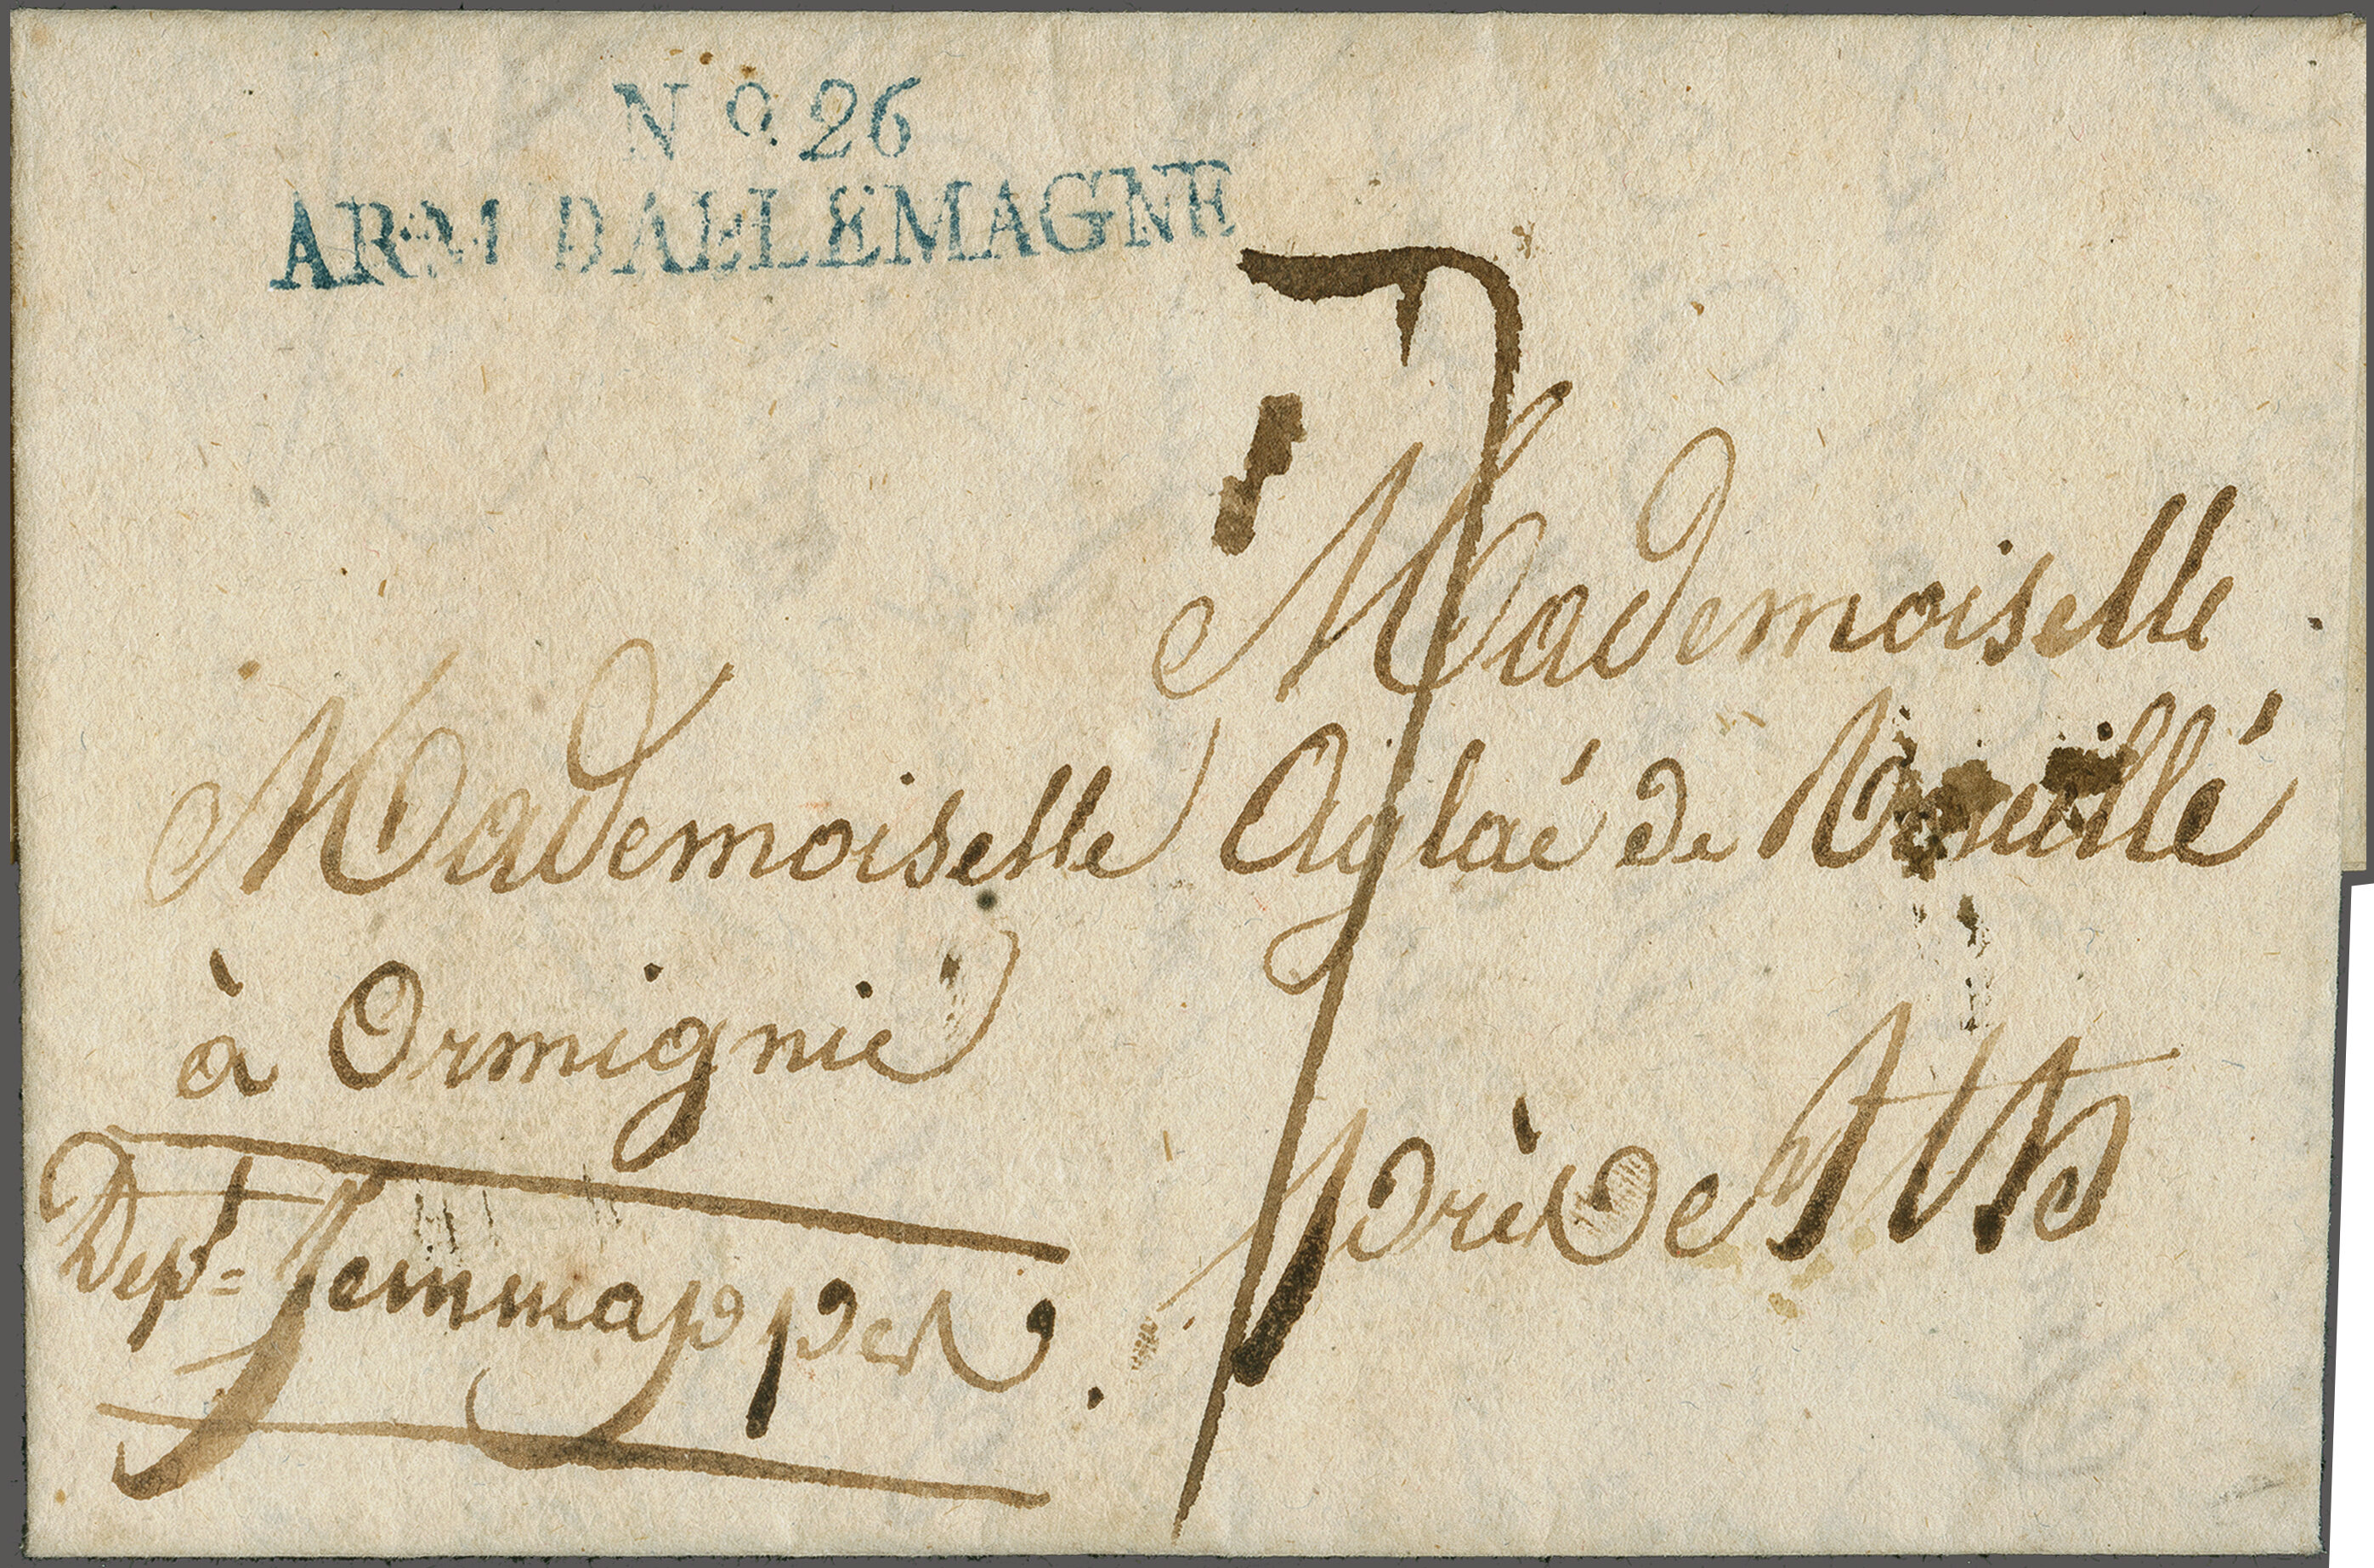 No. 26
ARM D'ALLEMAGNE
7
Mademoiselle
Mademoiselle Aglaé de
à Ormignié
près de Ath
Dept= Jemmappes.